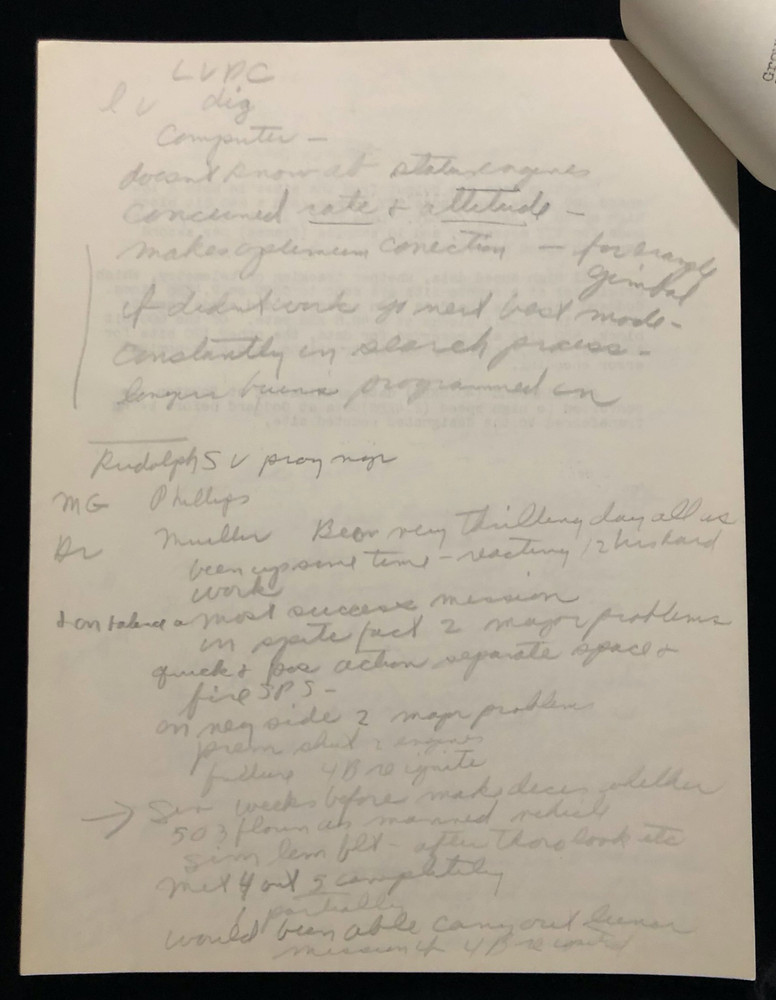 LVDC
l v dig
Computer –
doesn't know at status engines
concerned rate & attitude –
makes optimum correction – for example
gimbal
if didn't work go next best mode –
constantly in search process –
longer burns programmed in
Rudolph S V prog mgr
MG Phillips
Dr Mueller Been very thrilling day all us
been up some time – reacting 12 hrs hard
work
on balance a most success mission
in spite fact 2 major problems
quick & pos action separate space &
fire SPS –
on neg side 2 major problems
prem shut 2 engines
failure 4B reignite
→ Sev weeks before make decis whether
503 flown as manned vehicle
sim lem flt – after thoro look etc
met 4 out 5 completely
1 partially
would been able carry out lunar
mission if 4B reignited
Grou